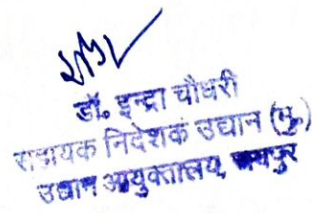 डॉ. इन्द्रा चौधरी
सहायक निदेशक उद्यान (मु.)
उद्यान आयुक्तालय, जयपुर